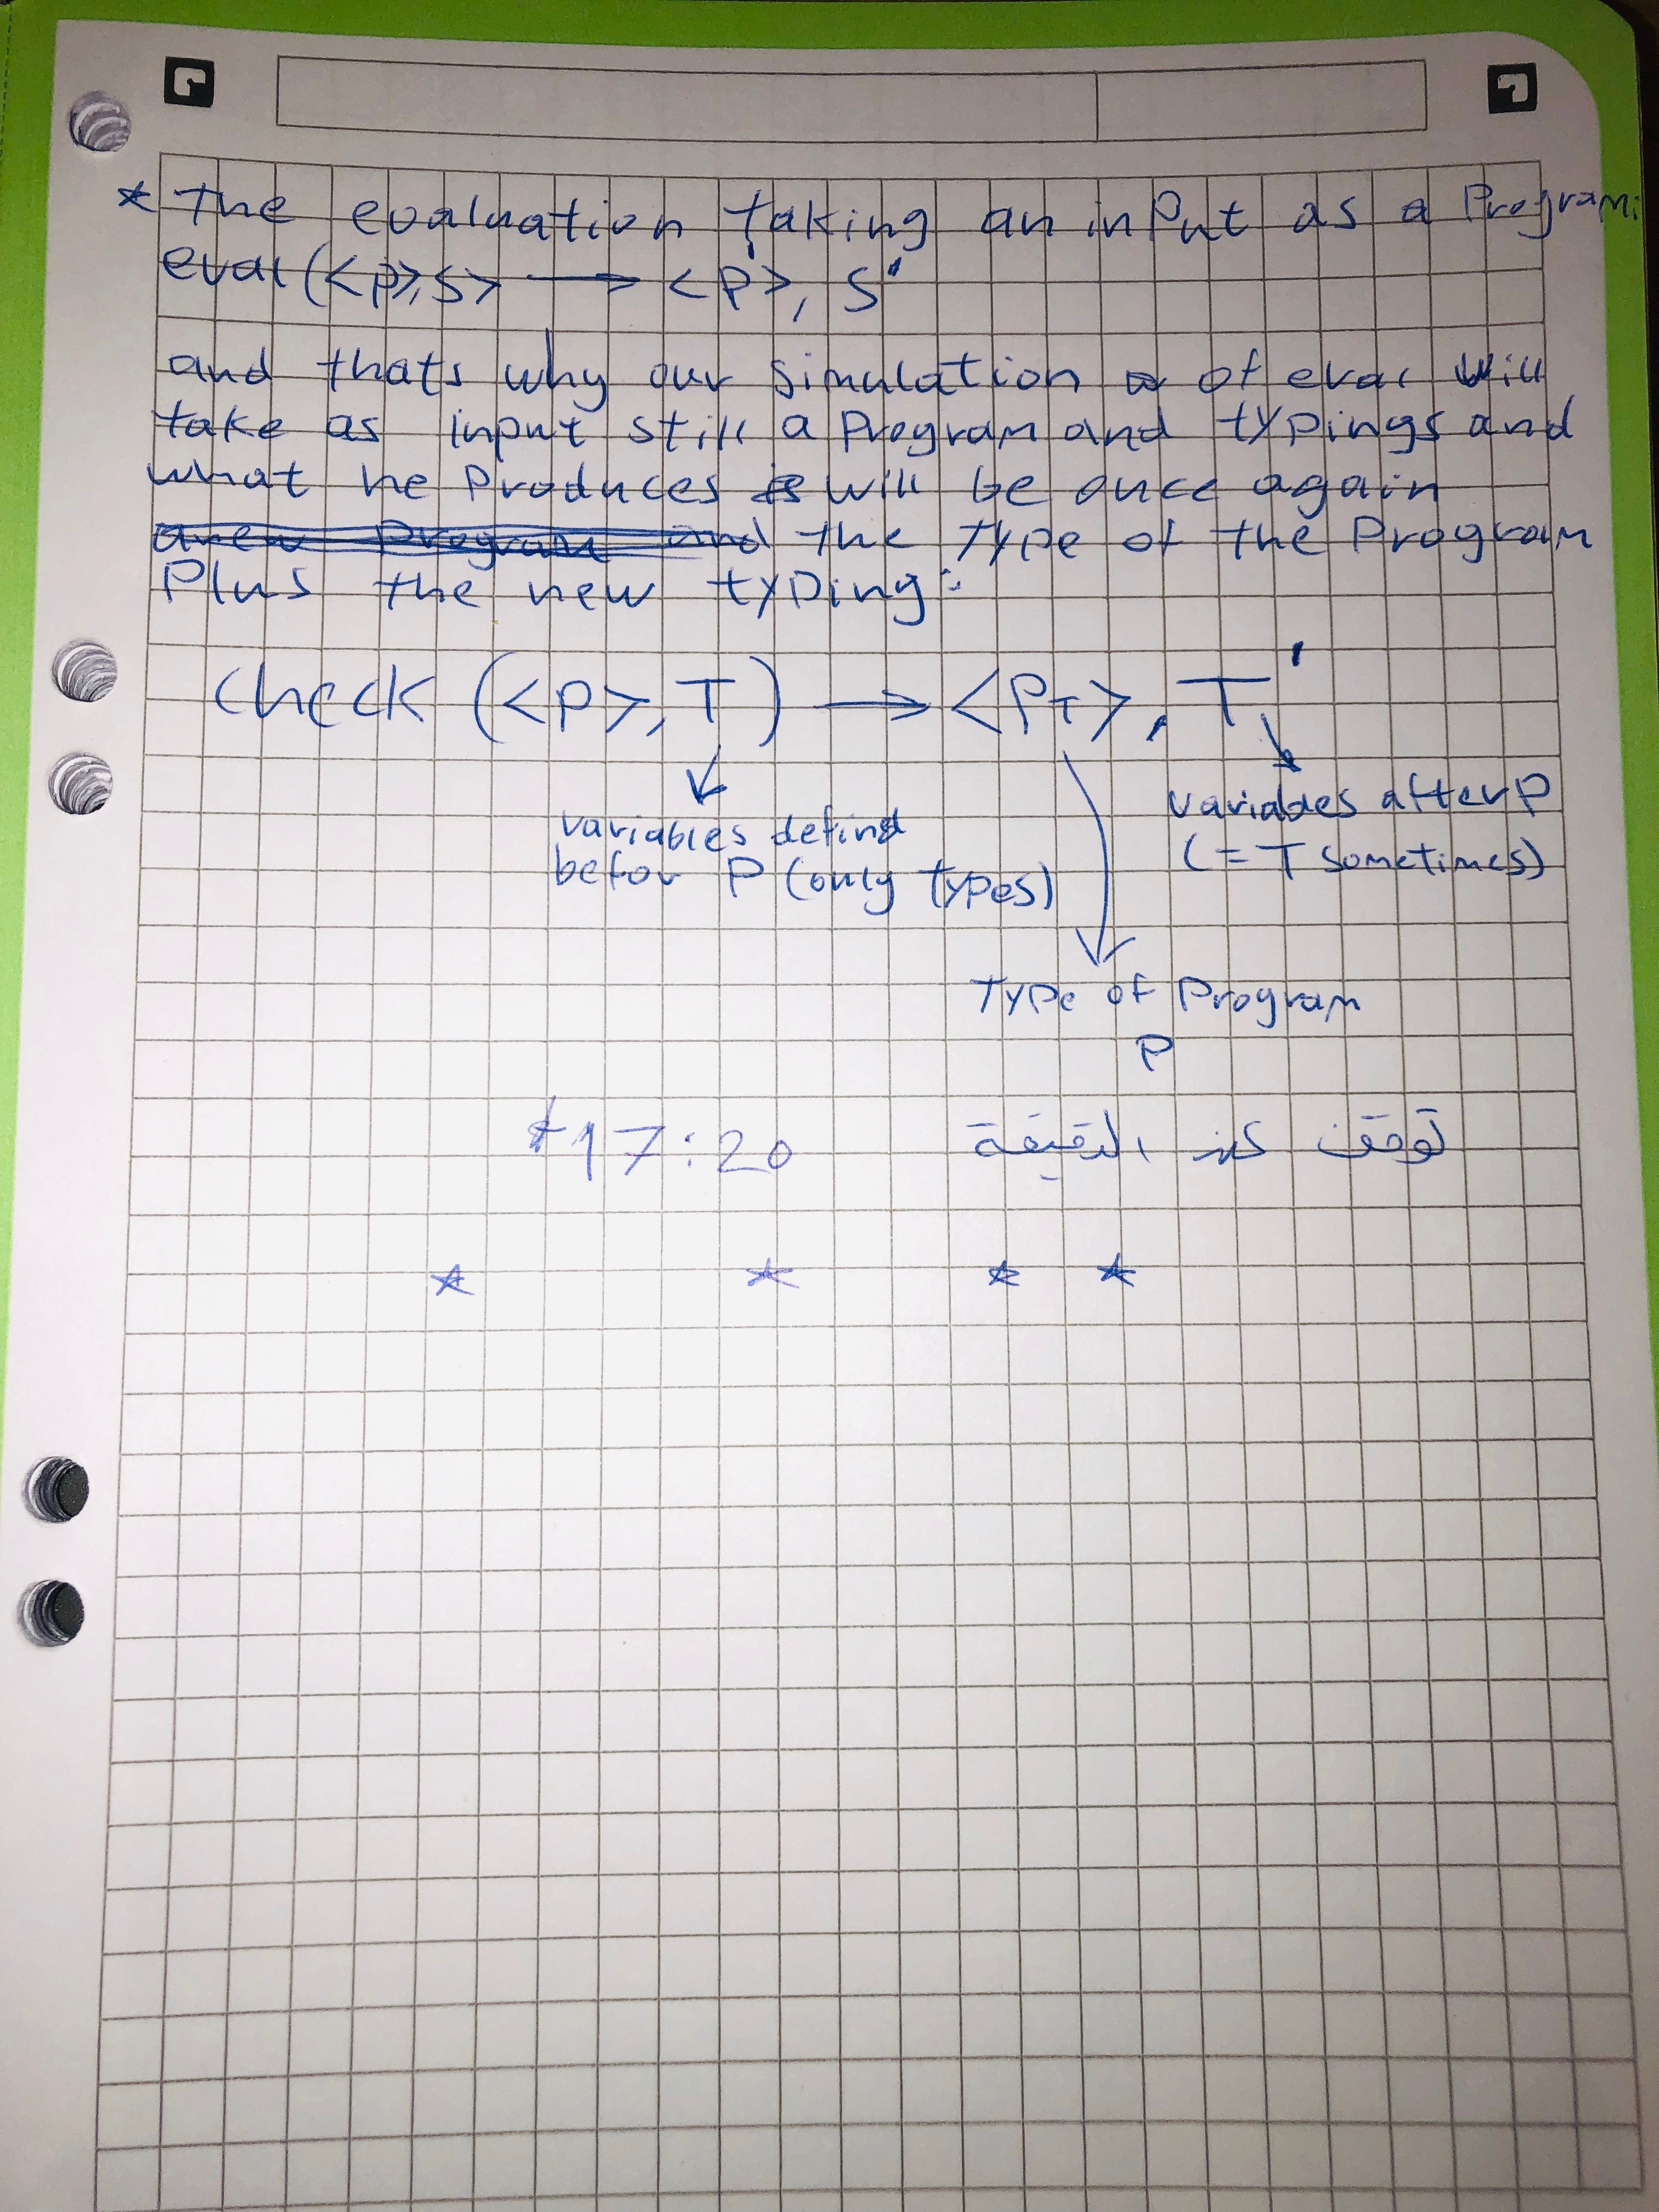 * The evaluation taking an input as a Program:
eval(<P>,S> → <P'>, S'
and thats why our simulation of eval will
take as input still a Program and typings and
what he Produces will be once again
a new Program and the Type of the Program
Plus the new typing:
Check (<P>, T) → <PT>, T'
variables defind
befor P (only types)
variables after P
(= T sometimes)
Type of Program
P
توقف عند الدقيقة 17:20
* * * *